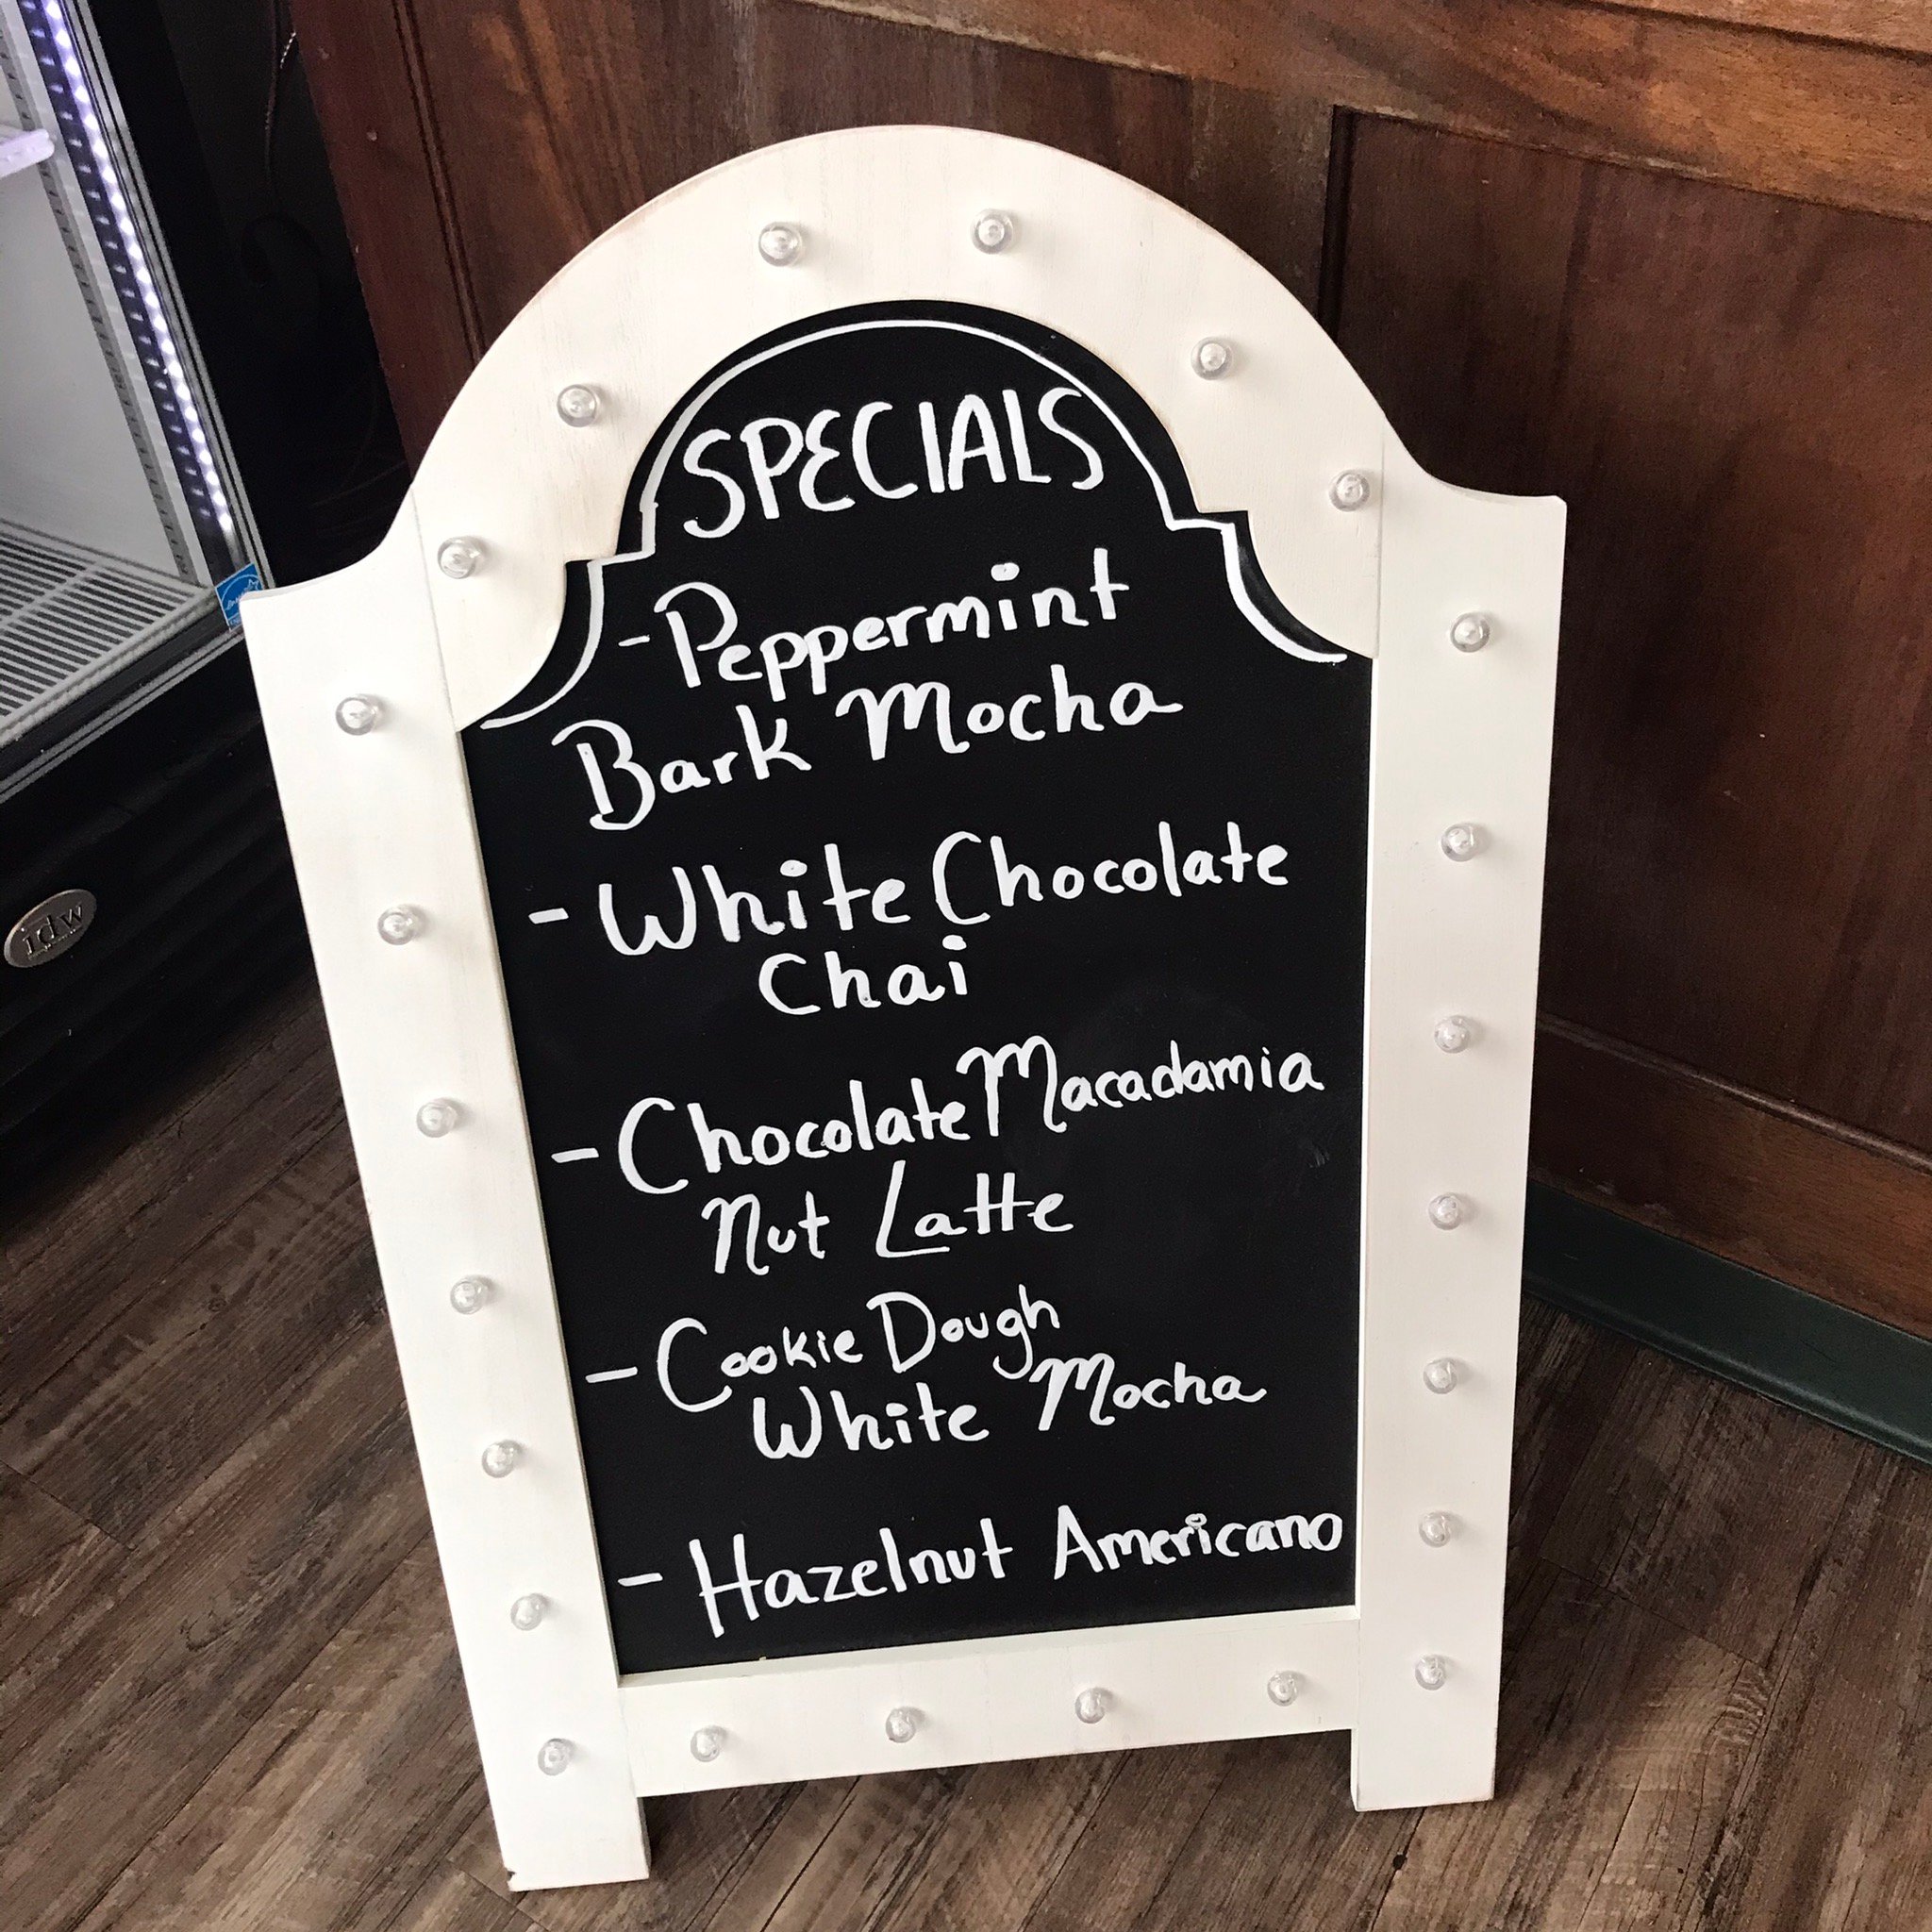 SPECIALS
-Peppermint
Bark Mocha
- White Chocolate
Chai
- Chocolate Macadamia
Nut Latte
- Cookie Dough
White Mocha
- Hazelnut Americano
idw